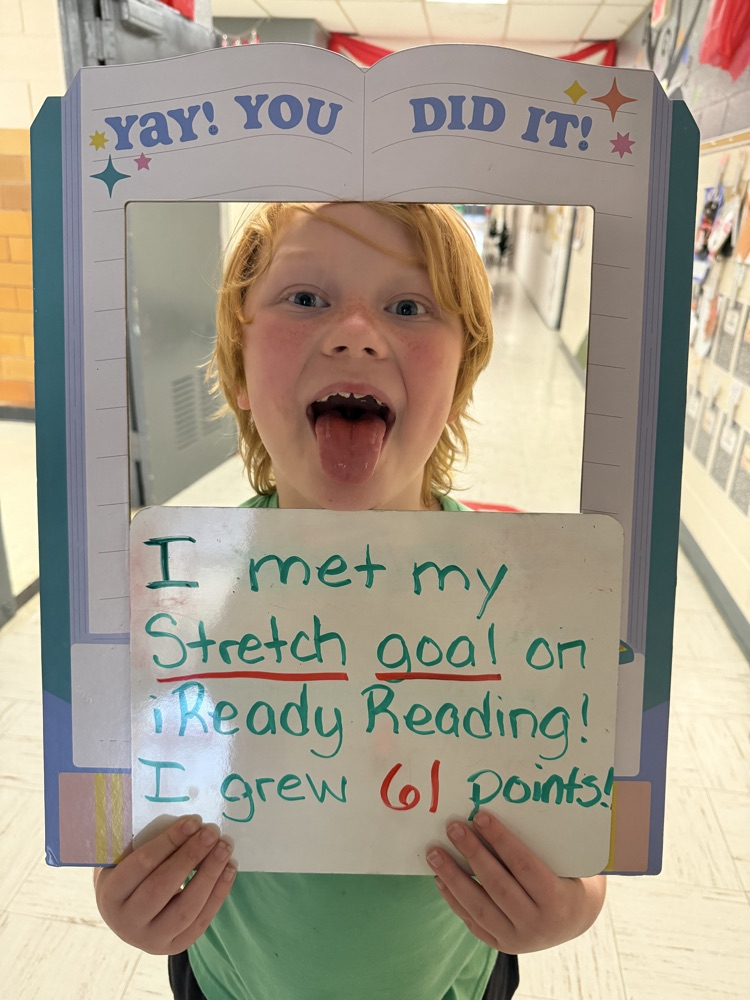 YAY! YOU DID IT!
I met my
Stretch goal on
iReady Reading!
I grew 61 points!